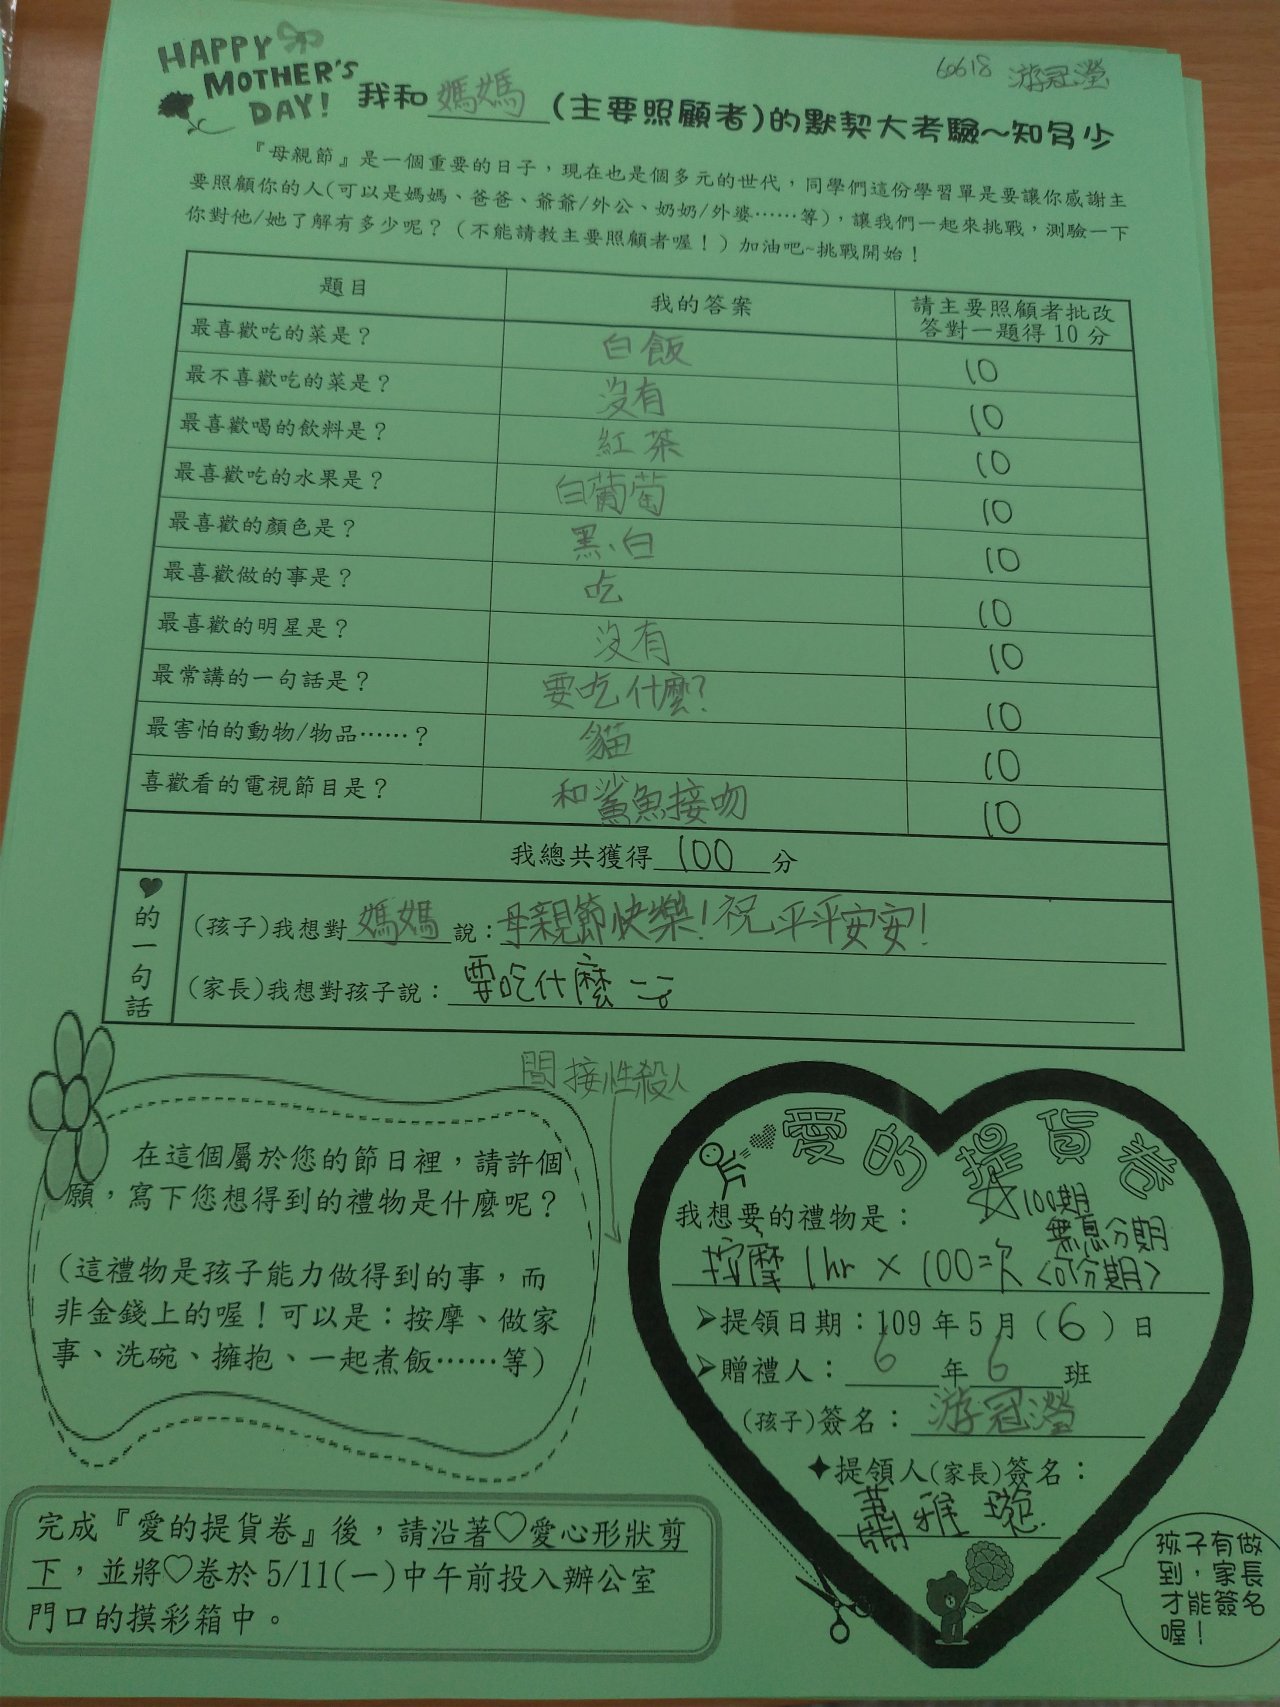 HAPPY
MOTHER'S
DAY!
60618 游冠瀅
我和媽媽(主要照顧者)的默契大考驗～知多少
『母親節』是一個重要的日子，現在也是個多元的世代，同學們這份學習單是要讓你感謝主
要照顧你的人(可以是媽媽、爸爸、爺爺/外公、奶奶/外婆……等)，讓我們一起來挑戰，測驗一下
你對他/她了解有多少呢？（不能請教主要照顧者喔！）加油吧~挑戰開始！
題目 我的答案 請主要照顧者批改
答對一題得10分
最喜歡吃的菜是？ 白飯 10
最不喜歡吃的菜是？ 沒有 10
最喜歡喝的飲料是？ 紅茶 10
最喜歡吃的水果是？ 白葡萄 10
最喜歡的顏色是？ 黑、白 10
最喜歡做的事是？ 吃 10
最喜歡的明星是？ 沒有 10
最常講的一句話是？ 要吃什麼? 10
最害怕的動物/物品……？ 貓 10
喜歡看的電視節目是？ 和鯊魚接吻 10
我總共獲得100分
的一句話
(孩子)我想對媽媽說：母親節快樂!祝平平安安!
(家長)我想對孩子說：要吃什麼
間接性殺人
在這個屬於您的節日裡，請許個
願，寫下您想得到的禮物是什麼呢？
(這禮物是孩子能力做得到的事，而
非金錢上的喔！可以是：按摩、做家
事、洗碗、擁抱、一起煮飯……等)
愛的提貨卷
☆100期
無息分期
我想要的禮物是：
按摩 1hr × 100次 <可分期>
➤提領日期：109年5月(6)日
➤贈禮人：6年6班
(孩子)簽名：游冠瀅
✦提領人(家長)簽名：
雅璇
完成『愛的提貨卷』後，請沿著♡愛心形狀剪
下，並將♡卷於5/11(一)中午前投入辦公室
門口的摸彩箱中。
孩子有做
到，家長
才能簽名
喔！